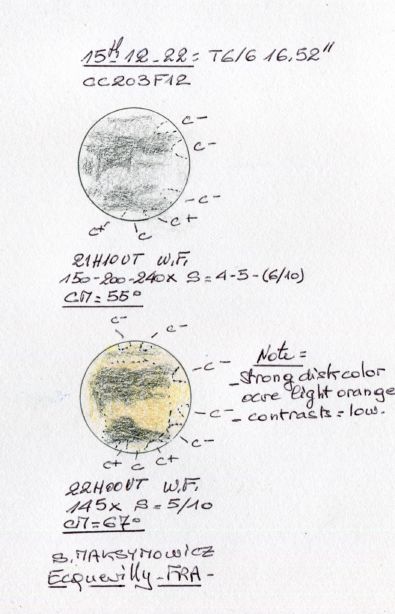 15th 12-22 = T6/6 16.52"
CC203F12
C-
C-
C-
C+
C
C+
21H10UT W.F.
150-200-240x S = 4-5-(6/10)
CM = 55°
C-
C-
C-
C-
C-
C+
C
C+
Note =
- strong disk color
ocre light orange
- contrasts = low.
22H00UT W.F.
145x S = 5/10
CM = 67°
S. MAKSYMOWICZ
Ecquevilly - FRA -